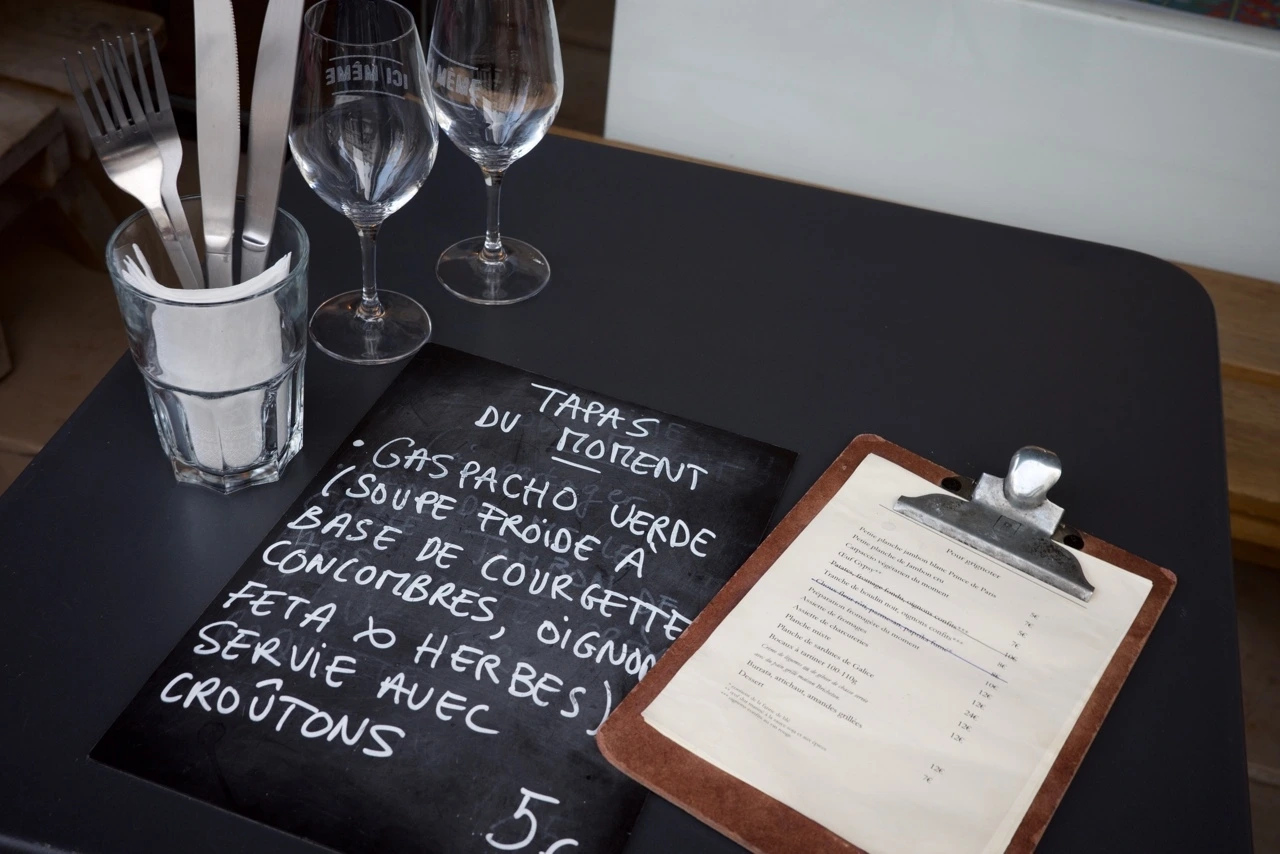 ICI MÊME
MÊME
TAPAS
DU MOMENT
• GASPACHO VERDE
(SOUPE FROIDE À
BASE DE COURGETTE
CONCOMBRES, OIGNON
FETA & HERBES)
SERVIE AVEC
CROÛTONS
5€
Pour grignoter
Petite planche jambon blanc Prince de Paris 9€
Petite planche de jambon cru 7€
Carpaccio végétarien du moment 5€
Œuf Gypsy** 7€
Patates, fromage fondu, oignons confits*** 10€
Tranche de boudin noir, oignons confits*** 9€
Préparation fromagère du moment 10€
Assiette de fromages 12€
Assiette de charcuteries 12€
Planche mixte 24€
Planche de sardines de Galice 12€
Bocaux à tartiner 100-110g 12€
Burrata, artichaut, amandes grillées 12€
Dessert 7€